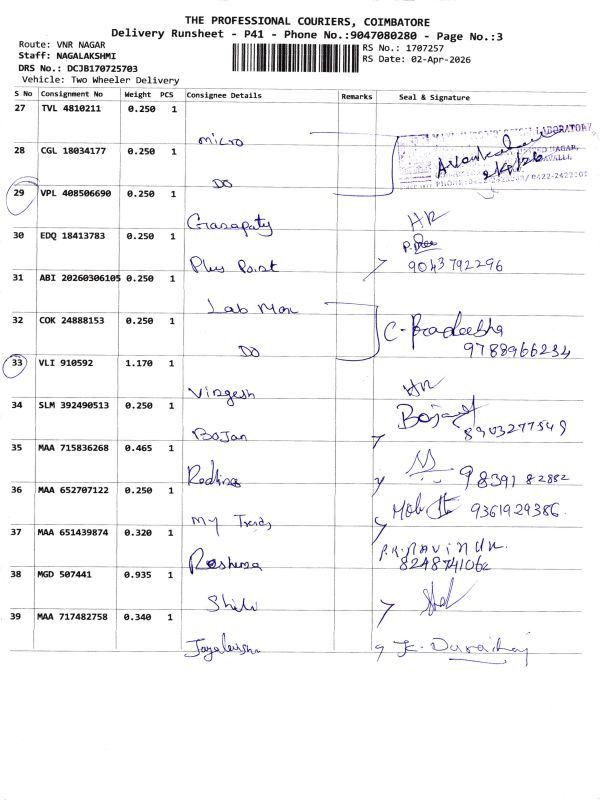 THE PROFESSIONAL COURIERS, COIMBATORE
Delivery Runsheet - P41 - Phone No.:9047080280 - Page No.:3
Route: VNR NAGAR
Staff: NAGALAKSHMI
DRS No.: DCJB170725703
Vehicle: Two Wheeler Delivery
RS No.: 1707257
RS Date: 02-Apr-2026
S No Consignment No Weight PCS Consignee Details Remarks Seal & Signature
27 TVL 4810211 0.250 1
micro
LABORATORY
28 CGL 18034177 0.250 1
DO
NAGAR,
0422-2422101
29 VPL 408506690 0.250 1
HR
30 EDQ 18413783 0.250 1
Plus Point
9043792296
31 ABI 20260306105 0.250 1
Lab Man
32 COK 24888153 0.250 1
DO
C. Pradeebha
9788966234
33 VLI 910592 1.170 1
Virgesh
HR
34 SLM 392490513 0.250 1
Bojan
8903277549
35 MAA 715836268 0.465 1
98391 82882
36 MAA 652707122 0.250 1
My Trends
9361929386.
37 MAA 651439874 0.320 1
Roshma
P.K.RAVINDR.
8248741062
38 MGD 507441 0.935 1
39 MAA 717482758 0.340 1
K. Durairaj